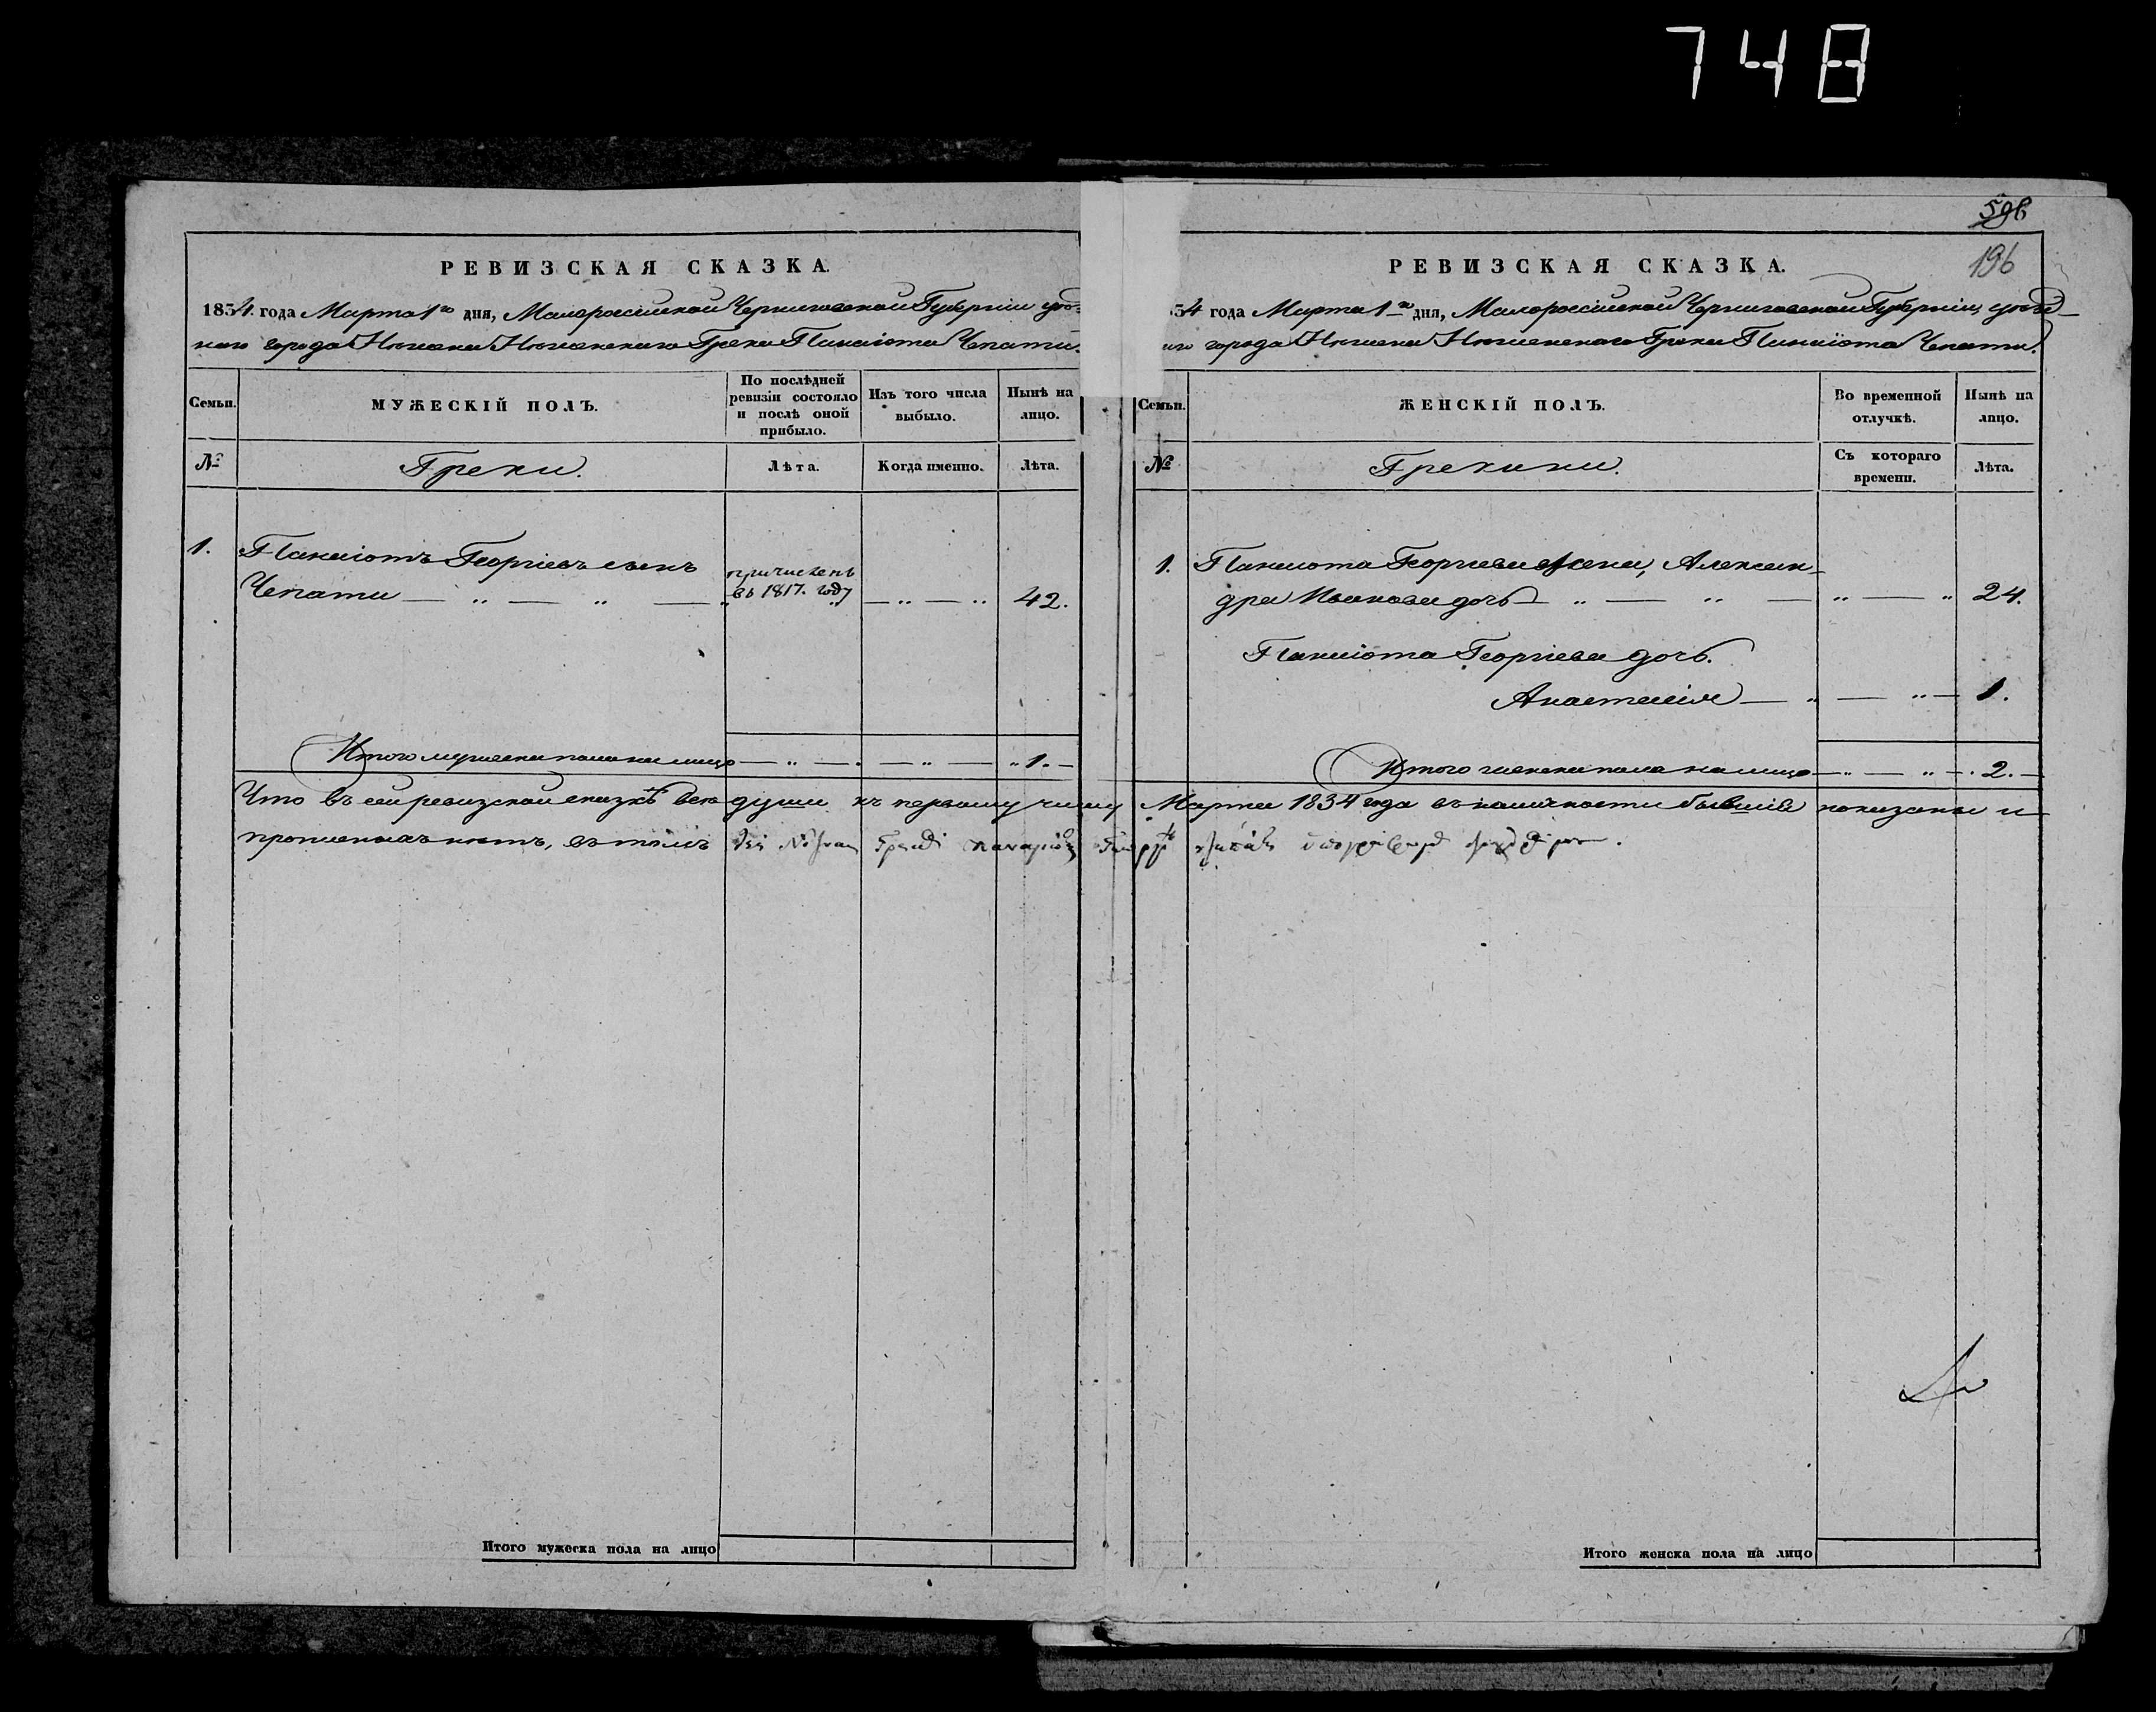 748
596
196
РЕВИЗСКАЯ СКАЗКА.
1834 года Марта 1го дня, Малороссійской Черниговской Губерніи уѣз-
наго города Нѣжина Нѣжинскаго Грека Панаіота Чепати.
Семьи.
МУЖЕСКІЙ ПОЛЪ.
По послѣдней ревизіи состояло и послѣ оной прибыло.
Изъ того числа выбыло.
Нынѣ на лицо.
№
Греки.
Лѣта.
Когда именно.
Лѣта.
1. Панаіотъ Георгіевъ сынъ
Чепати — „ — „ — причисленъ въ 1817. году — „ — „ 42.
Итого мужеска пола на лицо — „ — . — „ — „ 1. —
РЕВИЗСКАЯ СКАЗКА.
34 года Марта 1го дня, Малороссійской Черниговской Губерніи, уѣзд-
наго города Нѣжина Нѣжинскаго Грека Панаіота Чепати.
Семьи.
ЖЕНСКІЙ ПОЛЪ.
Во временной отлучкѣ.
Нынѣ на лицо.
№
Грекини.
Съ котораго времени.
Лѣта.
1. Панаіота Георгіева жена, Алексан-
дра Иванова дочь — „ — „ — „ — „ 24.
Панаіота Георгіева дочь.
Анастасія — „ — „ — 1.
Итого женска пола на лицо — „ — „ — . 2. —
Что въ сей ревизской сказкѣ всѣ души къ первому числу Марта 1834 года въ наличности бывшія показаны и
прописныхъ нѣтъ, въ томъ
Итого мужеска пола на лицо
Итого женска пола на лицо